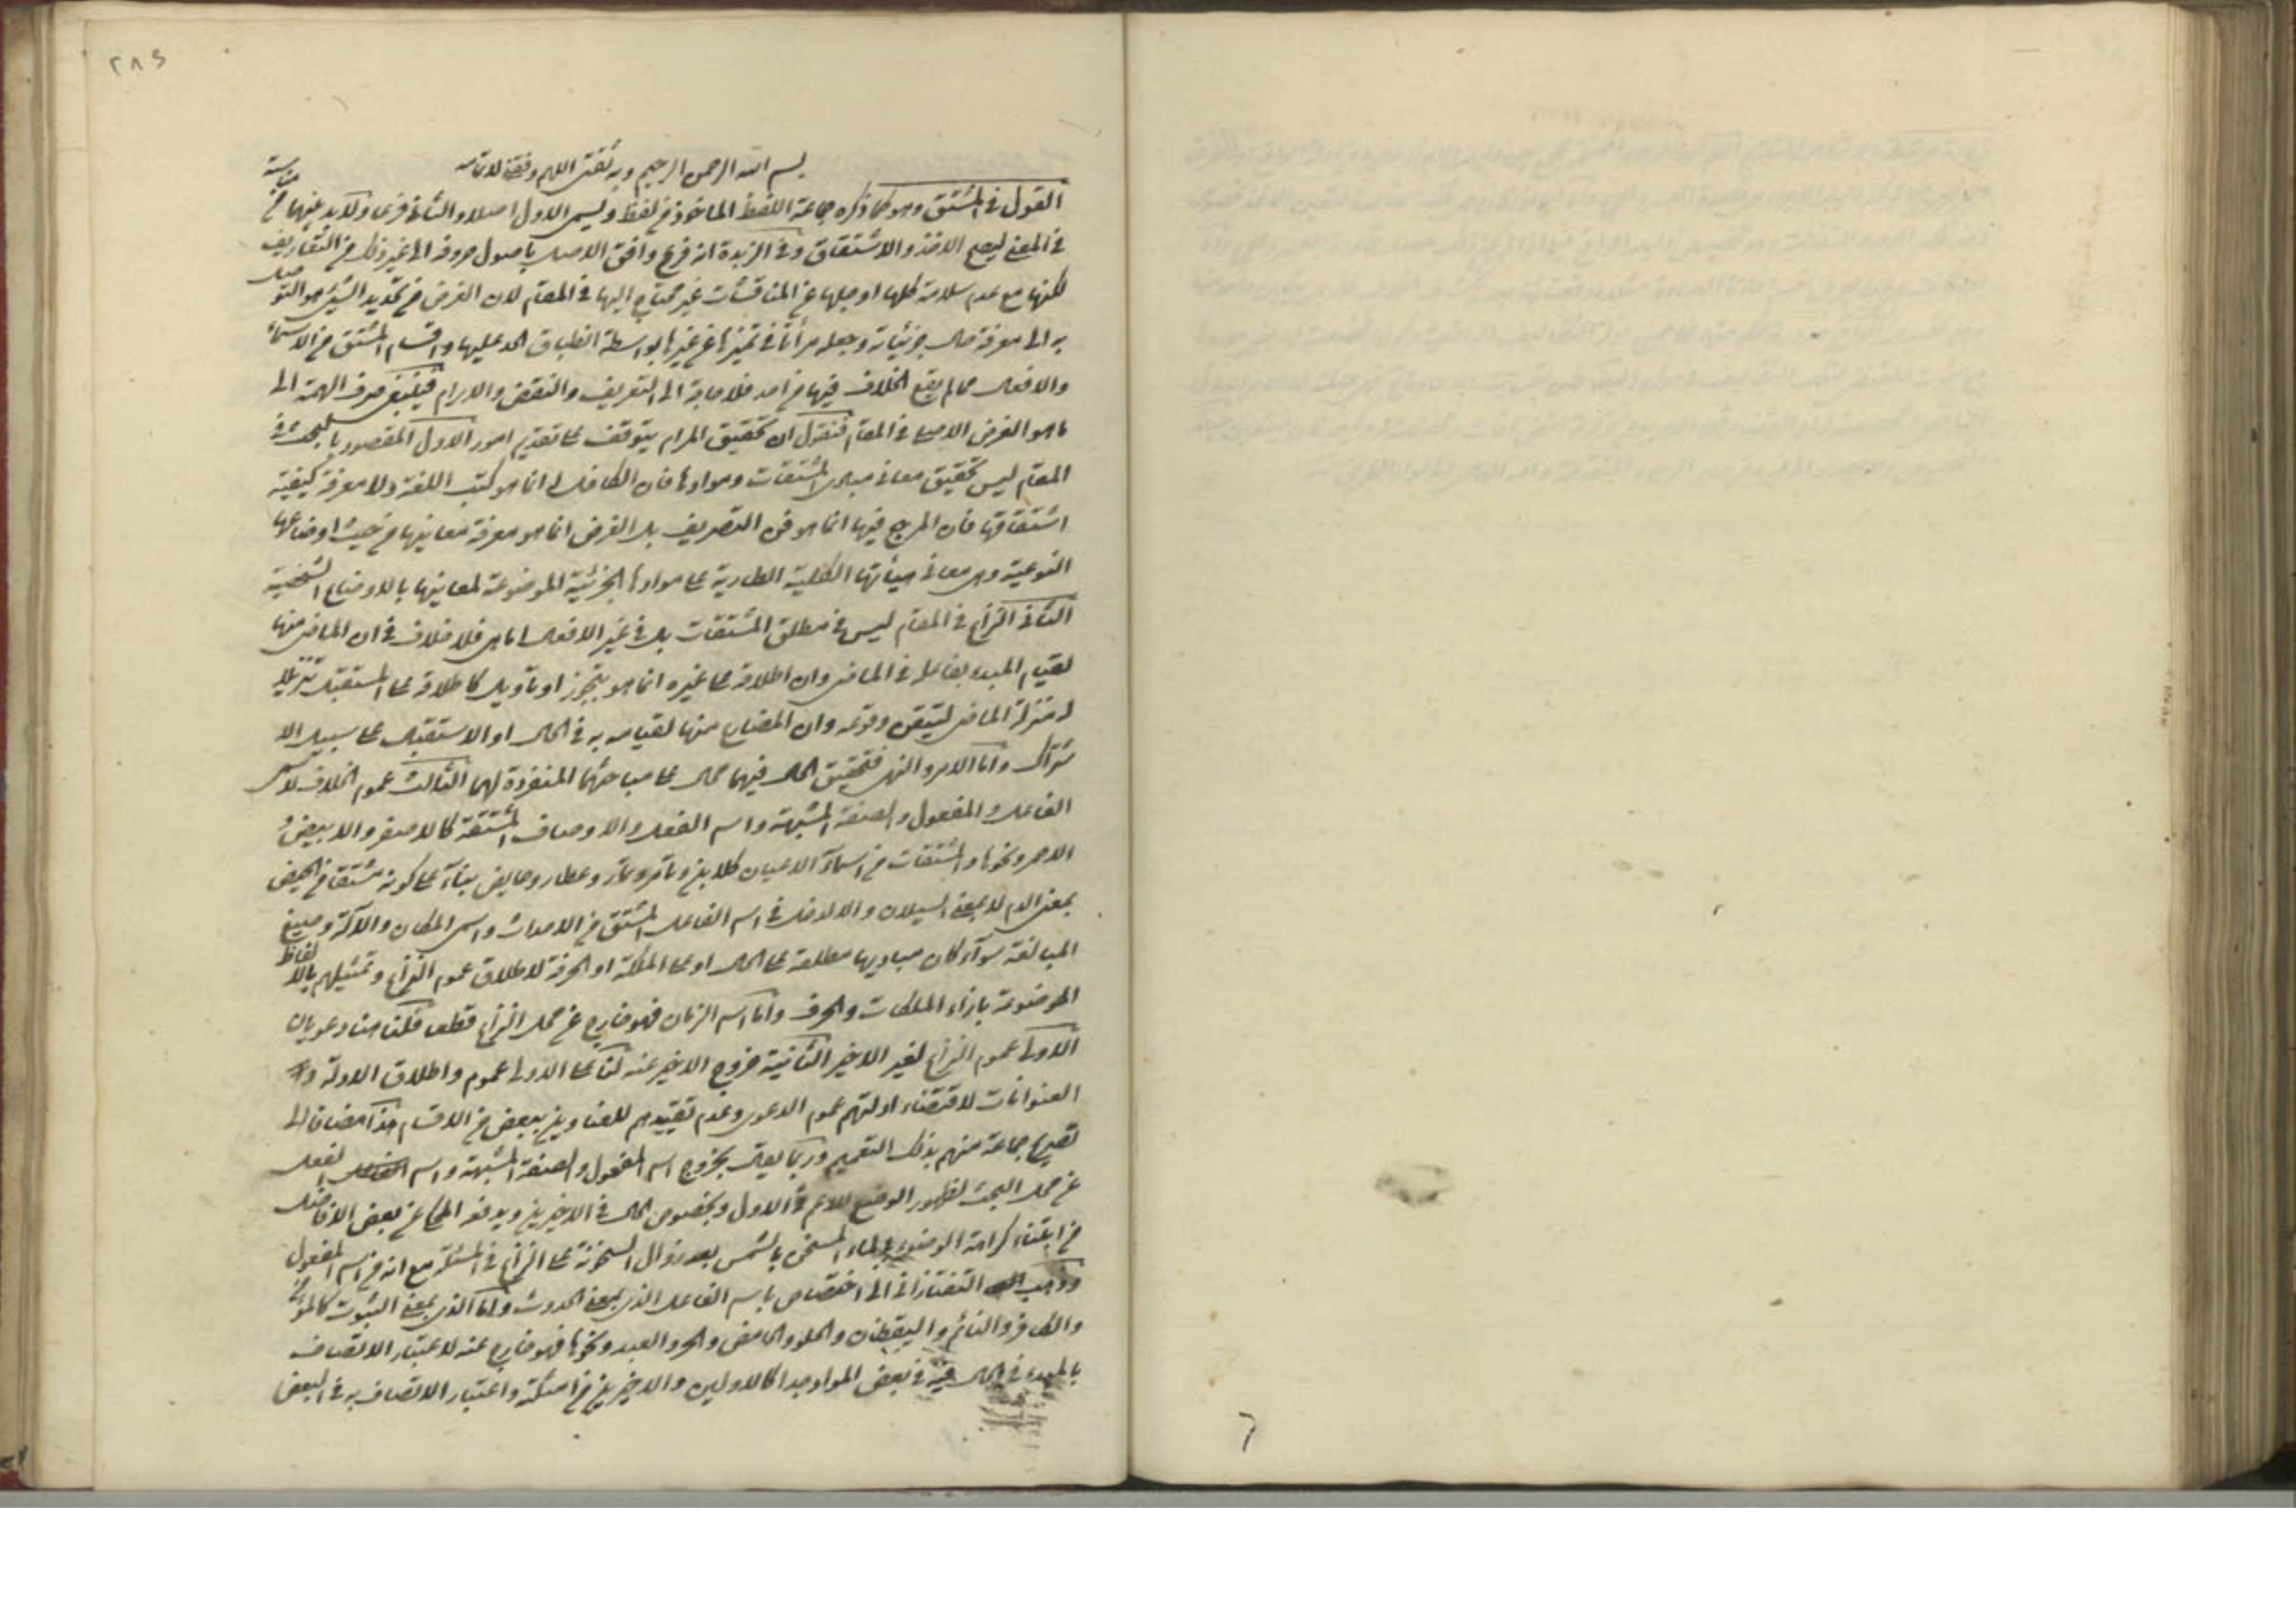 ٢٨٤
بسم الله الرحمن الرحيم وبه ثقتي اللهم وفقنا لاتمامه
القول في المشتق وهو كما ذكره جماعة اللفظ الماخوذ من لفظ ويسمى الاول اصلا والثاني فرعا ولا بد بينهما من مناسبة
في المعنى ليصح الاخذ والاشتقاق وفي الزبدة انه فرع وافق الاصل باصول حروفه الى غير ذلك من التعاريف
لكنها مع عدم سلامة كلها او جلها عن المناقشات غير محتاج اليها في المقام لان الغرض من تحديد الشيئ هو التوصل
به الى معرفة حال جزئياته وجعله مرآتا في تميزها عن غيرها بواسطة انطباق الحد عليها واقسام المشتق من الاسماء
والافعال مما لم يقع الخلاف فيها من احد فلا حاجة الى التعريف والنقض والابرام فينبغي صرف الهمة الى
ما هو الغرض الاصلي في المقام فنقول ان تحقيق المرام يتوقف على تقديم امور الاول المقصود بالبحث في
المقام ليس تحقيق معاني مبادى المشتقات وموادها فان الكافل له انما هو كتب اللغة ولا معرفة كيفية
اشتقاقها فان المرجع فيها انما هو فن التصريف بل الغرض انما هو معرفة معانيها من حيث اوضاعها
النوعية وهى معاني هيأتها الكلية الطارية على موادها الجزئية الموضوعة لمعانيها بالاوضاع الشخصية
الثاني النزاع في المقام ليس في مطلق المشتقات بل في غير الافعال اما هى فلا خلاف في ان الماضى منها
لقيام المبدء بفاعله في الماضى وان اطلاقه على غيره انما هو بتجوز او تاويل كاطلاقه على المستقبل تنزيلا
له منزلة الماضى لتيقن وقوعه وان المضارع منها لقيامه به في الحال او الاستقبال على سبيل الا
شتراك واما الامر والنهى فتحقيق الحال فيهما محال على مباحثهما المنفردة لهما الثالث عموم الخلاف لاسمى
الفاعل والمفعول والصفة المشبهة واسم الفعل والاوصاف المشتقة كالاصفر والابيض و
الاحمر ونحوها والمشتقات من اسماء الاعيان كلابن وتامر وتمار وعطار وحايض بناء على كونه مشتقا من الحيض
بمعنى الدم لا بمعنى السيلان والا لدخل في اسم الفاعل المشتق من الاحداث واسمى المكان والآلة وصيغ
المبالغة سوآء كان مباديها مطلقة على الحال او على الملكة او الحرفة لاطلاق عموم النزاع وتمثيلهم بالالفاظ
الموضوعة بازاء الملكات والحرف واما اسم الزمان فهو خارج عن محل النزاع قطعا فلنا هنا دعويان
الاولى عموم النزاع لغير الاخير الثانية خروج الاخير عنه لنا على الاولى عموم واطلاق الادلة و
العنوانات لاقتضاء ادلتهم عموم الدعوى وعدم تقييدهم للعناوين ببعض من الاقسام هذا مضافا الى
تصريح جماعة منهم بذلك التعميم وربما يقال بخروج اسم المفعول والصفة المشبهة واسم الفعل
عن محل البحث لظهور الوضع للاعم في الاول وبخصوص الحال في الاخيرين ويدفعه المحكي عن بعض الافاضل
من ابتناء كراهة الوضوء بالماء المسخن بالشمس بعد زوال السخونة على النزاع في المسئلة مع انه من اسم المفعول
وذهب التفتازاني الى اختصاص باسم الفاعل الذى بمعنى الحدوث واما الذى بمعنى الثبوت كالمؤمن
والكافر والنائم واليقظان والحلو والحامض والحر والعبد ونحوها فهو خارج عنه لاعتبار الاتصاف
بالمبدء في الحال فيه في بعض المواد جدا كالاولين والاخيرين من امثلة واعتبار الاتصاف به في البعض